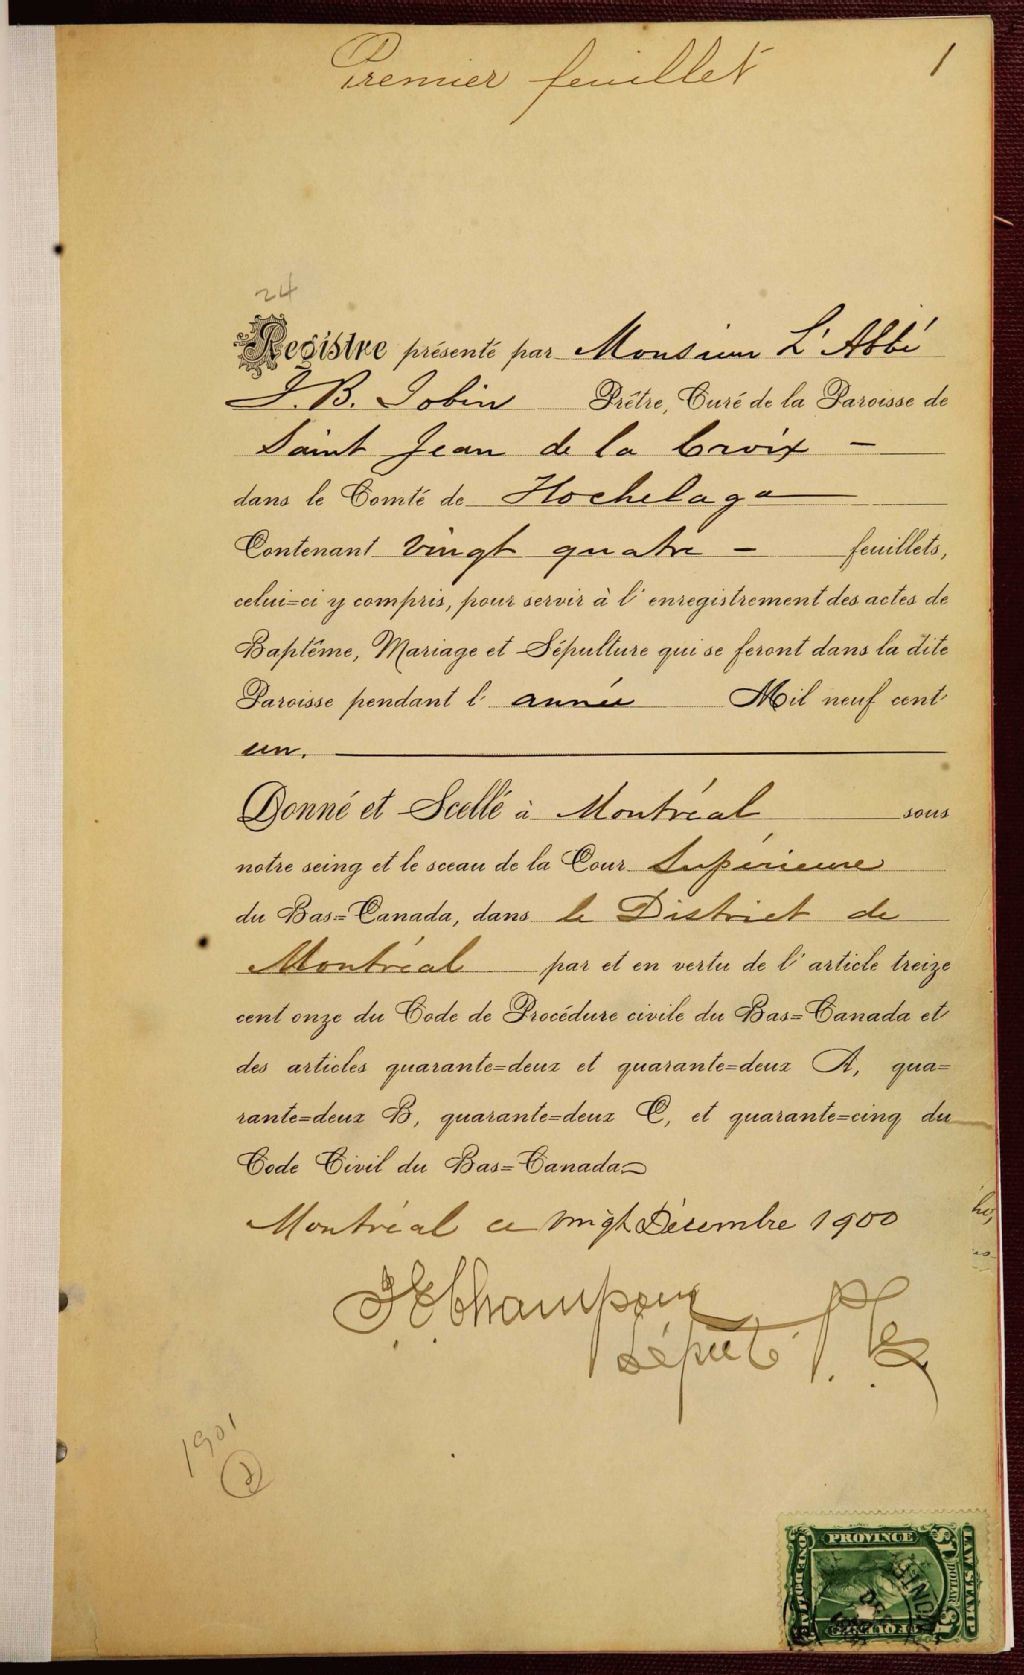 Premier feuillet
1
24
Registre présenté par Monsieur L'Abbé
J. B. Jobin Prêtre, Curé de la Paroisse de
Saint Jean de la Croix -
dans le Comté de Hochelaga
Contenant vingt quatre - feuillets,
celui=ci y compris, pour servir à l'enregistrement des actes de
Baptême, Mariage et Sépulture qui se feront dans la dite
Paroisse pendant l'année Mil neuf cent
un.
Donné et Scellé à Montréal sous
notre seing et le sceau de la Cour Supérieure
du Bas=Canada, dans le District de
Montréal par et en vertu de l'article treize
cent onze du Code de Procédure civile du Bas=Canada et
des articles quarante=deux et quarante=deux A, qua=
rante=deux B, quarante=deux C, et quarante=cinq du
Code Civil du Bas=Canada
Montréal ce vingt Décembre 1900
Député P.
1901
PROVINCE
LAW STAMP
ONE DOLLAR
DOLLAR
OF QUEBEC